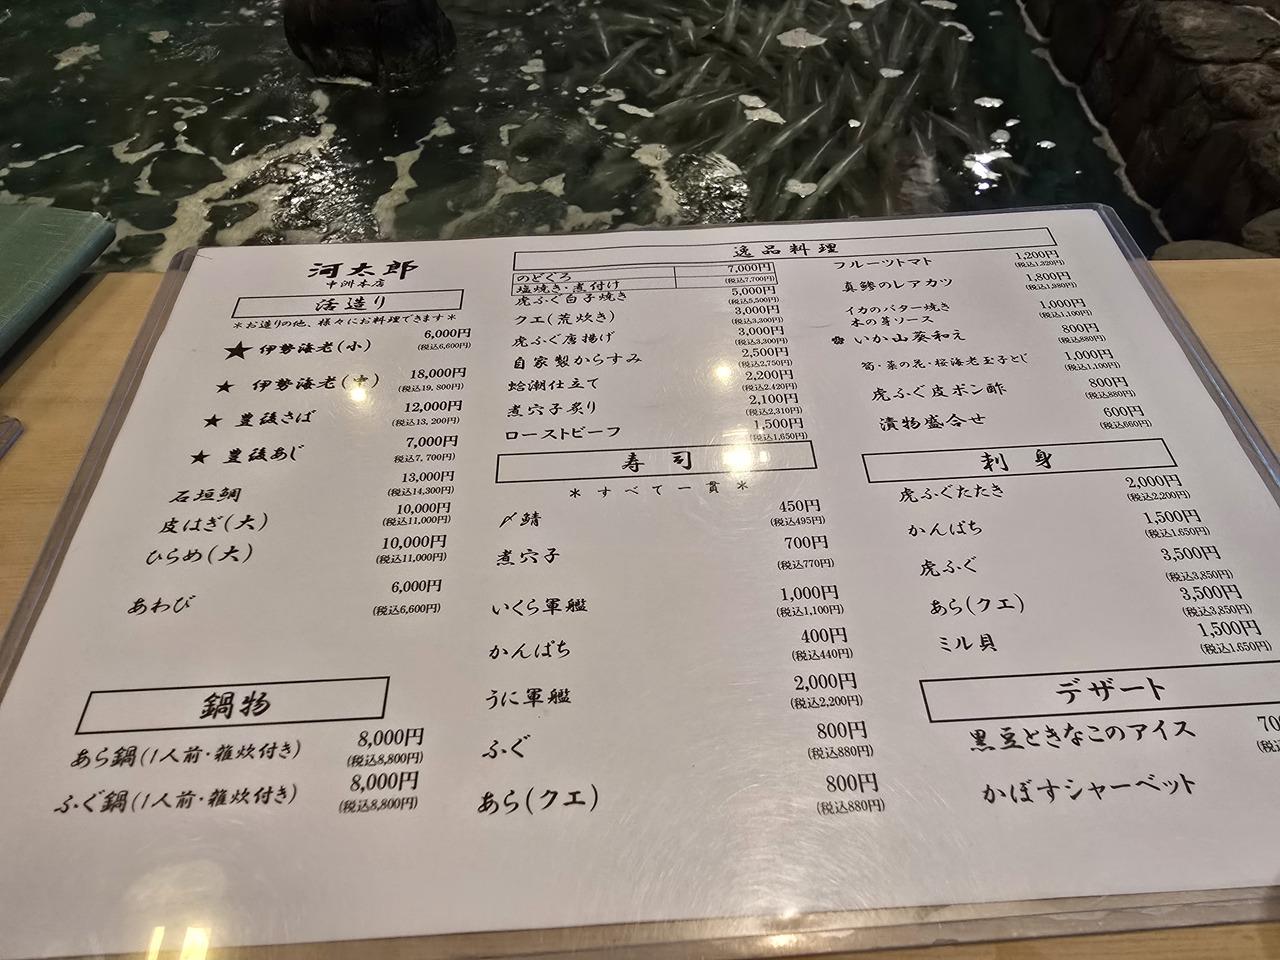 河太郎
中洲本店
活造り
＊お造りの他、様々にお料理できます＊
★ 伊勢海老(小) 6,000円
(税込6,600円)
★ 伊勢海老(中) 18,000円
(税込19,800円)
★ 豊後さば 12,000円
(税込13,200円)
★ 豊後あじ 7,000円
(税込7,700円)
石垣鯛 13,000円
(税込14,300円)
皮はぎ(大) 10,000円
(税込11,000円)
ひらめ(大) 10,000円
(税込11,000円)
あわび 6,000円
(税込6,600円)
鍋物
あら鍋(1人前・雑炊付き) 8,000円
(税込8,800円)
ふぐ鍋(1人前・雑炊付き) 8,000円
(税込8,800円)
逸品料理
のどぐろ 7,000円
塩焼き・煮付け (税込7,700円)
虎ふぐ白子焼き 5,000円
(税込5,500円)
クエ(荒炊き) 3,000円
(税込3,300円)
虎ふぐ唐揚げ 3,000円
(税込3,300円)
自家製からすみ 2,500円
(税込2,750円)
蛤潮仕立て 2,200円
(税込2,420円)
煮穴子炙り 2,100円
(税込2,310円)
ローストビーフ 1,500円
(税込1,650円)
フルーツトマト 1,200円
(税込1,320円)
真鯵のレアカツ 1,800円
(税込1,980円)
イカのバター焼き 1,000円
木の芽ソース (税込1,100円)
いか山葵和え 800円
(税込880円)
筍・菜の花・桜海老玉子とじ 1,000円
(税込1,100円)
虎ふぐ皮ポン酢 800円
(税込880円)
漬物盛合せ 600円
(税込660円)
寿司
＊すべて一貫＊
〆鯖 450円
(税込495円)
煮穴子 700円
(税込770円)
いくら軍艦 1,000円
(税込1,100円)
かんぱち 400円
(税込440円)
うに軍艦 2,000円
(税込2,200円)
ふぐ 800円
(税込880円)
あら(クエ) 800円
(税込880円)
刺身
虎ふぐたたき 2,000円
(税込2,200円)
かんぱち 1,500円
(税込1,650円)
虎ふぐ 3,500円
(税込3,850円)
あら(クエ) 3,500円
(税込3,850円)
ミル貝 1,500円
(税込1,650円)
デザート
黒豆ときなこのアイス 70
(税込
かぼすシャーベット